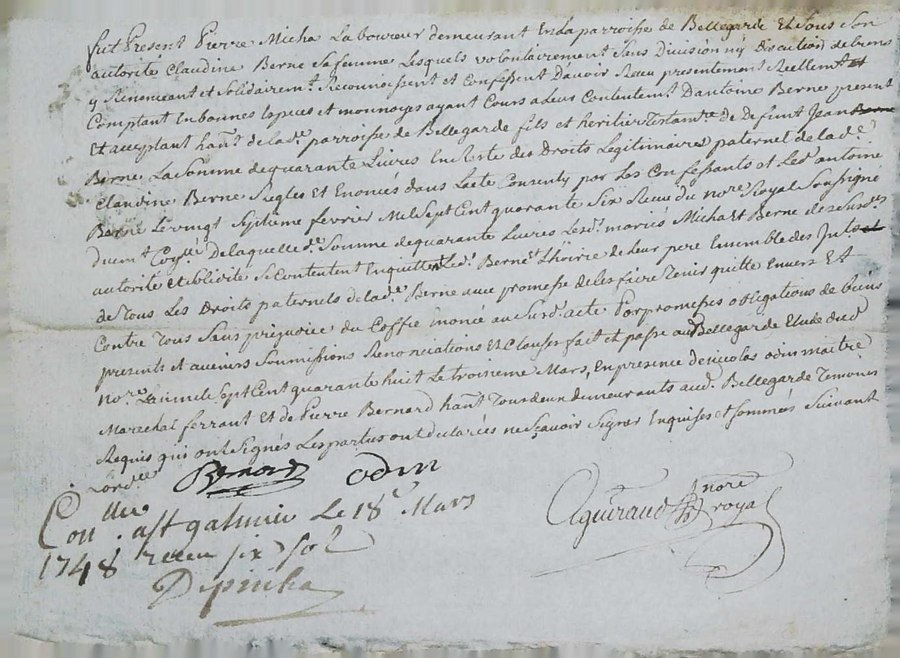 fut Present Pierre Micha Laboureur demeurant En La parroisse de Bellegarde Et Sous Son
autorité Claudine Berne Sa femme Lesquels volontairement Sans Division ny discution de biens
y Renonceant et Solidairemt. Reconnoissent et Confessent D'avoir Receu presentement Reellemt et
Comptant En bonnes Espèces et monnoyes ayant Cours a Leur Contentemt D'antoine Berne present
Et acceptant hant. de lade. parroisse de Bellegarde fils et heritier Testamre. de Defunt Jean Berne
Berne La Somme de quarante Livres En Reste des Droits Legitimaires paternel de lade.
Claudine Berne Regles Et Enoncés dans Lacte Consenty par Les Confessants et Led. antoine
Berne Le vingt Septième fevrier Mil Sept Cent quarante Six Receu du nore. Royal Soussigné
duemt. Coñllé De laquelle de. Somme de quarante Livres Lesd. mariés Micha et Berne de Susdes
autorité et Se Contentent En quittent Led. Berne et L'hoirie de Leur pere Ensemble des Intets et
de Tous Les Droits paternels de lade. Berne avec promesse de les faire Tenir quitte Envers Et
Contre Tous Sans prejudice du Coffre Enoncé au Surd. acte Par promesses obligations de biens
presents et avenirs Soumissions Renonciations Et Clauses fait et passé aud. Bellegarde Etude dud.
nore. Lan mil Sept Cent quarante huit Le troisieme Mars, En presence de nicolas odin maitre
Marechal ferrant Et de Pierre Bernard hant. Tous deux demeurants aud. Bellegarde Temoins
Requis qui ont Signés Les parties ont declarées ne Sçavoir Signer Enquises et Sommées Suivant
Lordce
Bernard odin
Aguiraud nore royal
Conllé a St galmier Le 18e Mars
1748 receu six sol
Depinha